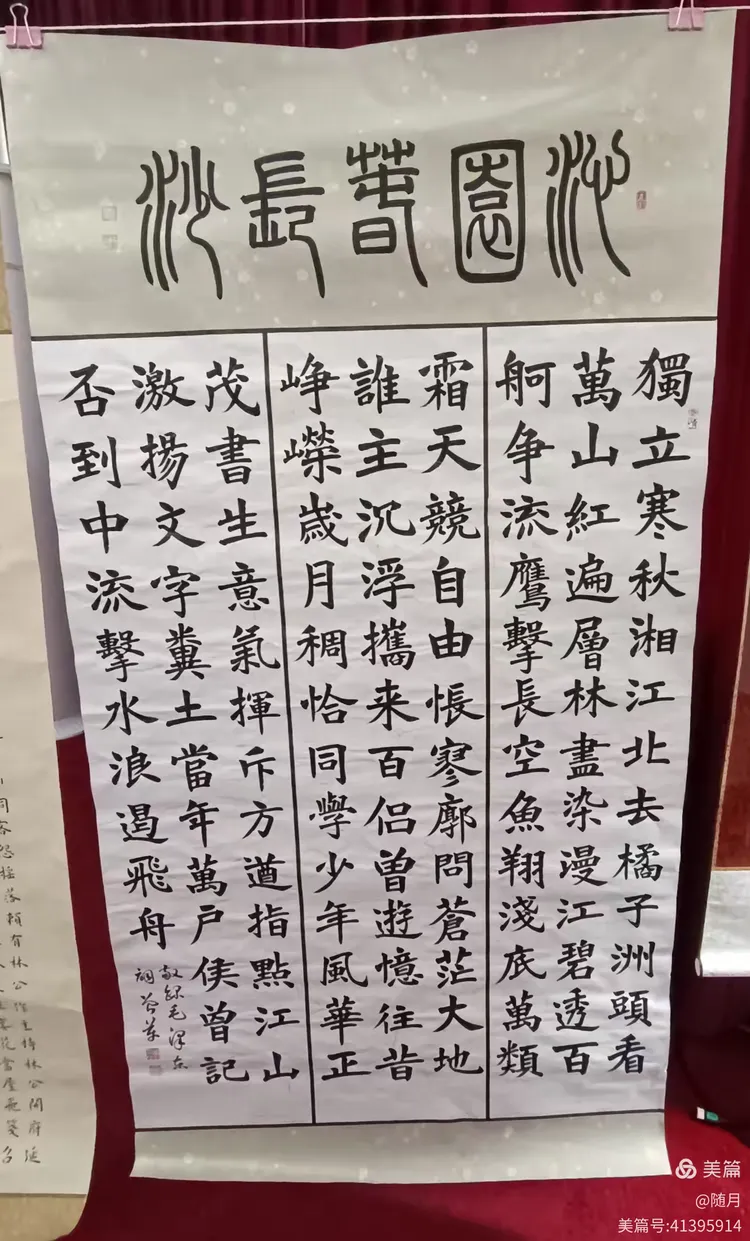 沁園春長沙
獨立寒秋湘江北去橘子洲頭看
萬山紅遍層林盡染漫江碧透百
舸争流鷹擊長空魚翔淺底萬類
霜天競自由悵寥廓問蒼茫大地
誰主沉浮攜来百侣曾遊憶往昔
峥嶸歲月稠恰同學少年風華正
茂書生意氣揮斥方遒指點江山
激揚文字糞土當年萬户侯曾記
否到中流擊水浪遏飛舟
敬録毛澤东
詞
美篇
@随月
美篇号:41395914